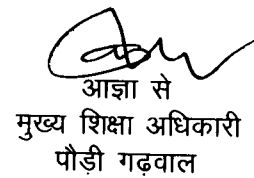 आज्ञा से
मुख्य शिक्षा अधिकारी
पौड़ी गढ़वाल